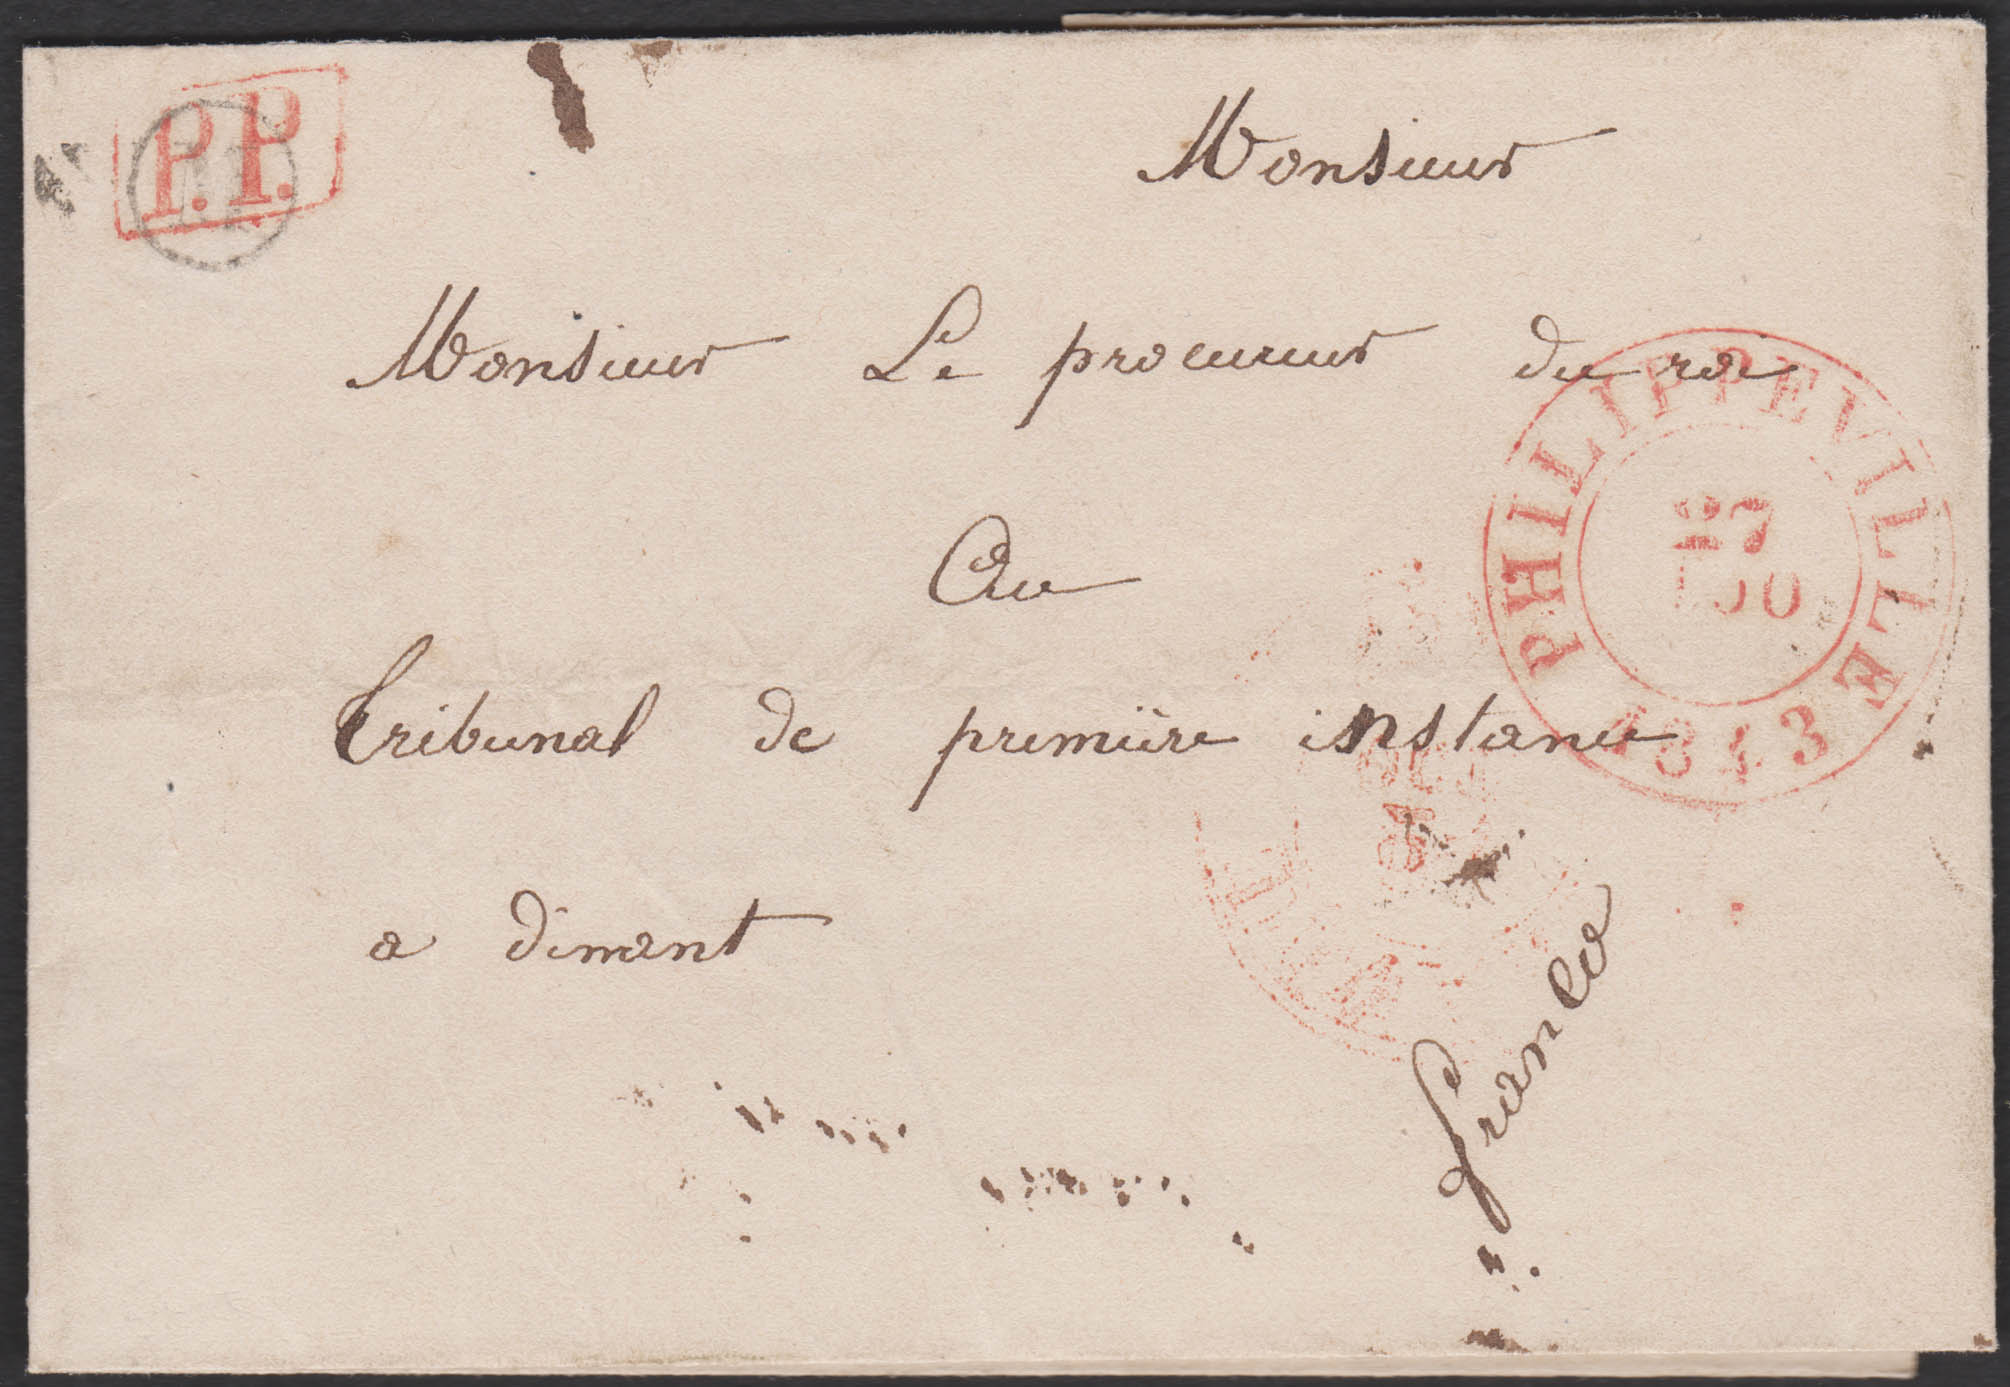 P.P.
Monsieur
Monsieur Le procureur du roi
Au
tribunal de première instance
a dinant
franco
PHILIPPEVILLE
27
1843